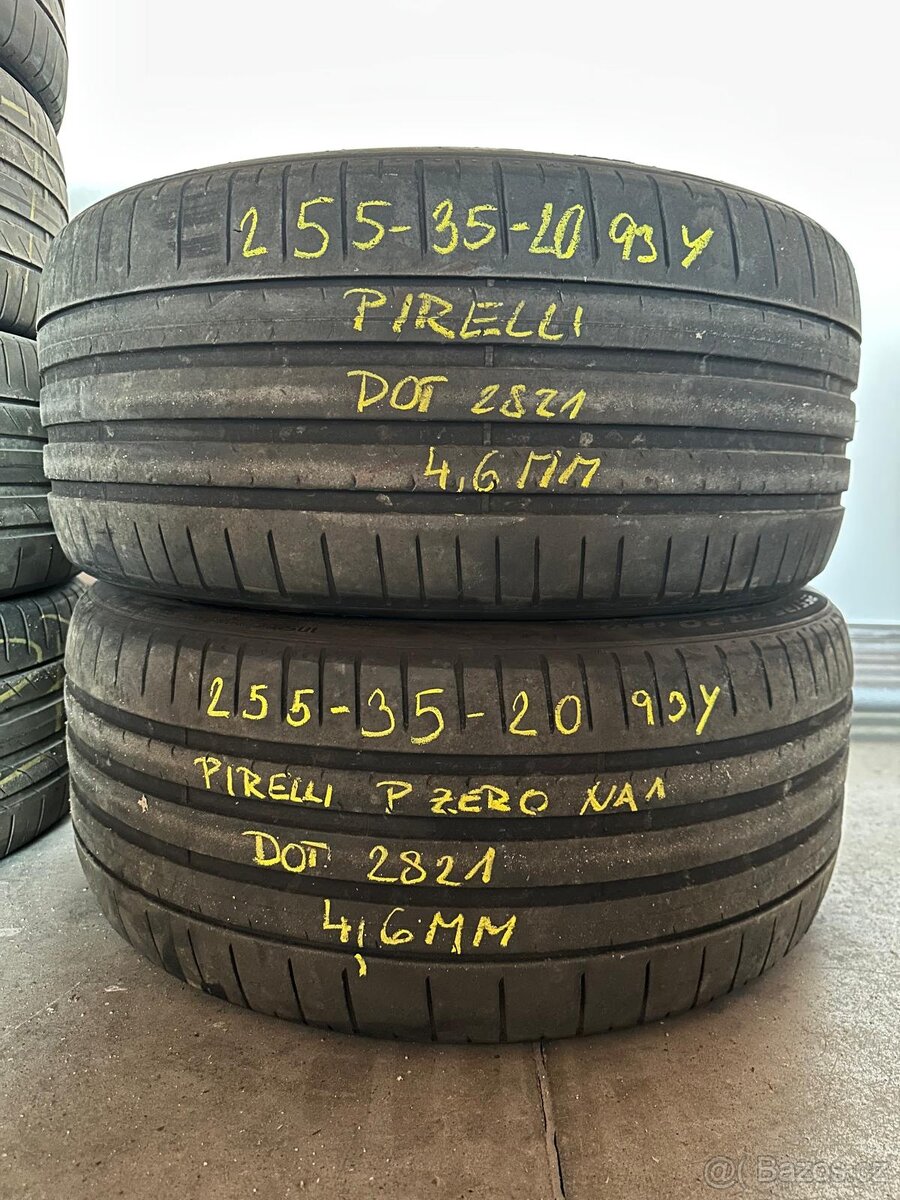 255-35-20 93Y
PIRELLI
DOT 2821
4,6 MM
255-35-20 93Y
PIRELLI P ZERO NA1
DOT 2821
4,6 MM
@( Bazos.cz